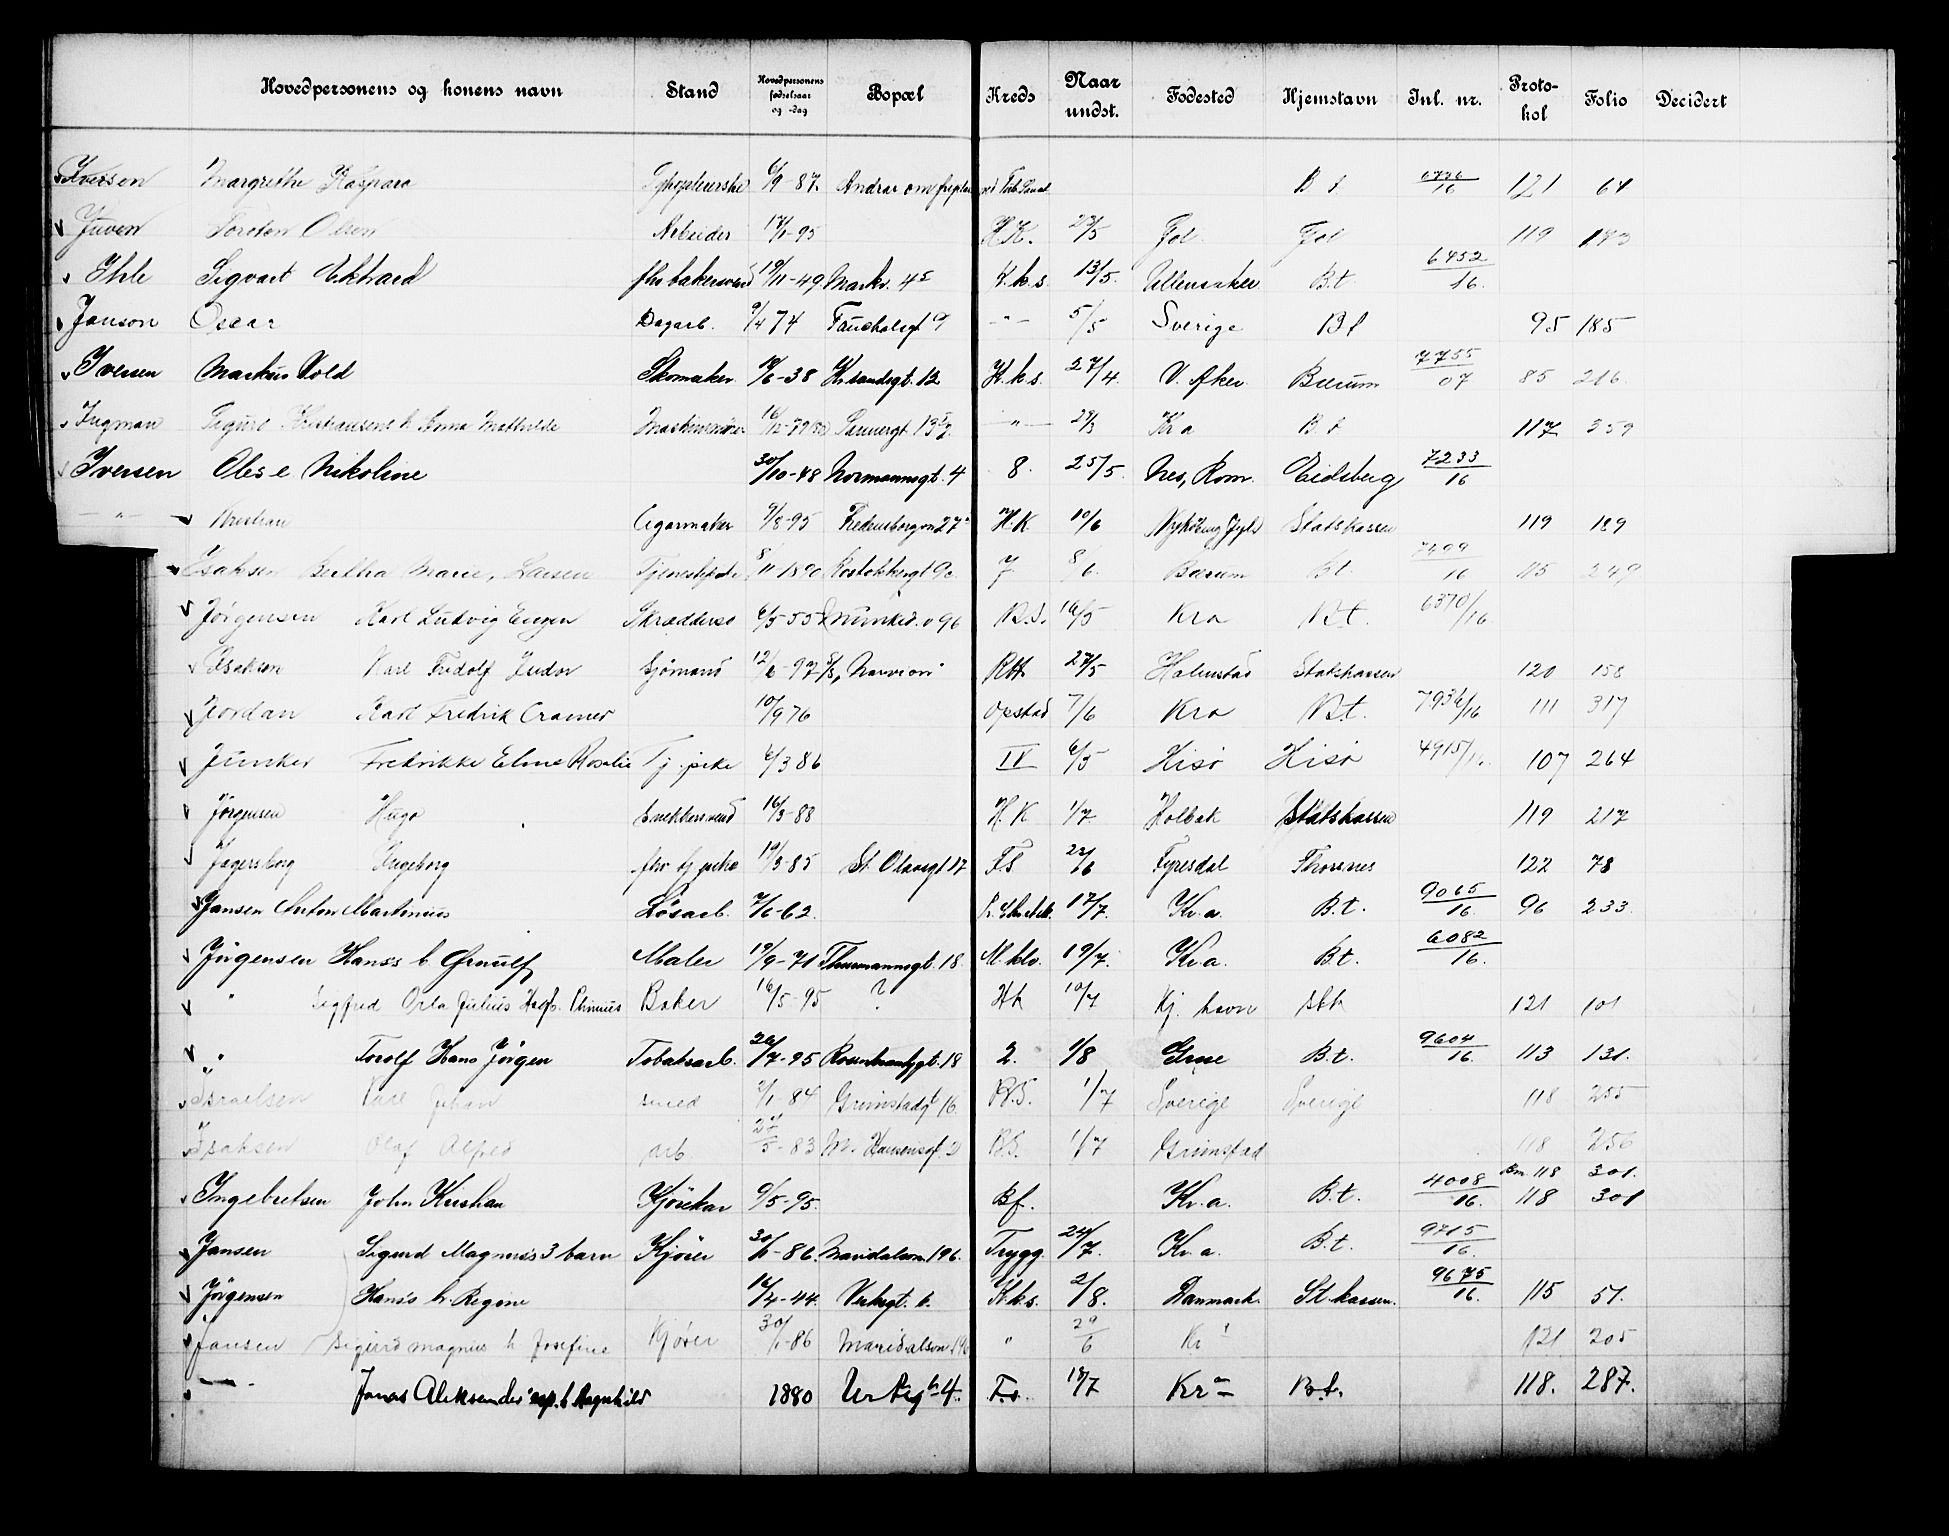 Hovedpersonens og konens navn Stand Hovedpersonens fødselsaar og -dag Bopæl Kreds Naar undst. Fødested Hjemstavn Inl. nr. Protokol Folio Decidert
Iversen Margrethe Kaspara 6/9-87. B t 16 121 64
Juven Torsten Olsen Arbeider 17/1-95 H.K. 5 Fol Fol 119 183
Ihle Sigvart Ekhard fhv bakersvend 19/11-49 Markv. 4 K.k.s. 13/5. Ullensaker B.t. 6452/16.
Janson Oscar Dagarb. 9/4 74 Fauchalsgt 9 -"- 5/5 Sverige Bt 95 185
Iversen Markus Vold Skomaker 18/6-38 Kr.sandsgt. 12 K.k.s. 27/4. V. Aker Bærum 7755/07 85 216.
Ingman Sigurd h Anna Mathilde 12-79 Sannergt. 13 -"- Kra B.t 117 359
Iversen Olese Nikoline 30/10-48 Normannsgt. 4 8. 25/5. Nes, Rom. Eidsberg 7233/16
-"- Kristian Cigarmaker 9/8-95 27 H.K 10/6 Nykøbing Jyll Statskassen 119 189
Isaksen Bertha Marie, Larsen Tjenestepike 8/11 1890 Rostokkergt 9c. 7. 8/6. Bærum Bt. 7409/16 115 249
Jørgensen Karl Ludvig Eugen Skrædders 6/5-55 96 B.S. 16/5 Kra B.t. 6370/16
Isaksen Karl Fridolf Judor Sjømand 12/6-97 S/S, Narvion Rtt. 27/5 Halmstad Statskassen 120 158
Jordan Karl Fredrik Cramer 10/9 76 Opstad 7/6 Kra B.t. 7936/16 111 317
Juncker Fredrikke Eline Rosalie Tj. pike 6/3 86 IV 6/5 Hisø Hisø 4915/16. 107 264
Jørgensen Hugo Snekkersvend 16/3-88 H.K 1/7. Holbæk Statskassen 119 217
Jægersborg Ingeborg fhv tj pike 19/3-85 St. Olavsgt 17 FS 22/6 Fyresdal Thorsnes 122 78
Jansen Anton Martinius Løsarb. 7/6-62. 17/7. Kr.a. B.t. 9065/16. 96 233.
Jørgensen Hans's h. Ørnulf Maler 19/9-71 Thurmannsgt. 18. M.klv. 19/7. Kr.a. B.t. 6082/16.
" Sigfred Orla Julius Baker 16/5-95 ? Hk 10/7 Kj. havn stk 121 101
" Torolf Hans Jørgen Tobaksarb. 7-95 Rosenkrantzgt. 18 2. 1/8 Grue B.t. 9604/16. 113 131.
Israelsen Karl Johan smed 2/1-84 Grimstadgt 16. B.S. 1/7 Sverige Sverige 118 255
Isaksen Olaf Alfred arb. 27/5-83 M. Hansensgt. 2 B.S. 1/7 Grimstad 118 256
Bm 118 301.
Ingebretsen John Kristian Kjørekar 6/5-95. Bf. Kr.a. B.t. 4008/16. 118 301
Jansen Sigurd Magnus's 3 barn Kjører 30/1-86. Maridalsvn. 196. Trygg. 24/7. Kr.a. B.t. 9715/16.
Jørgensen Hans's h. Regine 4-44. Verksgt. 6. K.k.s. 2/8. Danmark St.kassen. 9675/16. 115 51.
Jansen Sigurd Magnus h Josefine Kjører 30/1-86 Maridalsvn 196 " 29/6 Kr 121 205
-"- Jonas Aleksander h Ragnhild 1880 Urtegt 4. F.s. 7 Kra B.t. 118. 287.